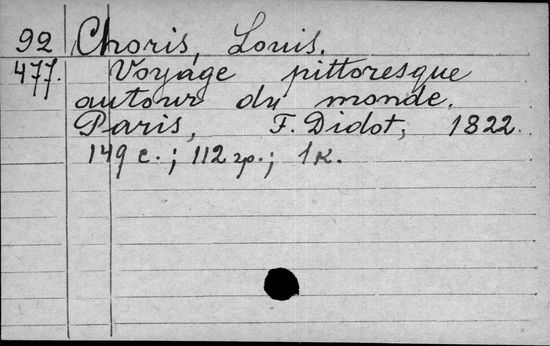 92 Choris, Louis.
477. Voyage pittoresque
autour du monde.
Paris, F. Didot, 1822.
149 с.; 112 гр.; 1 к.